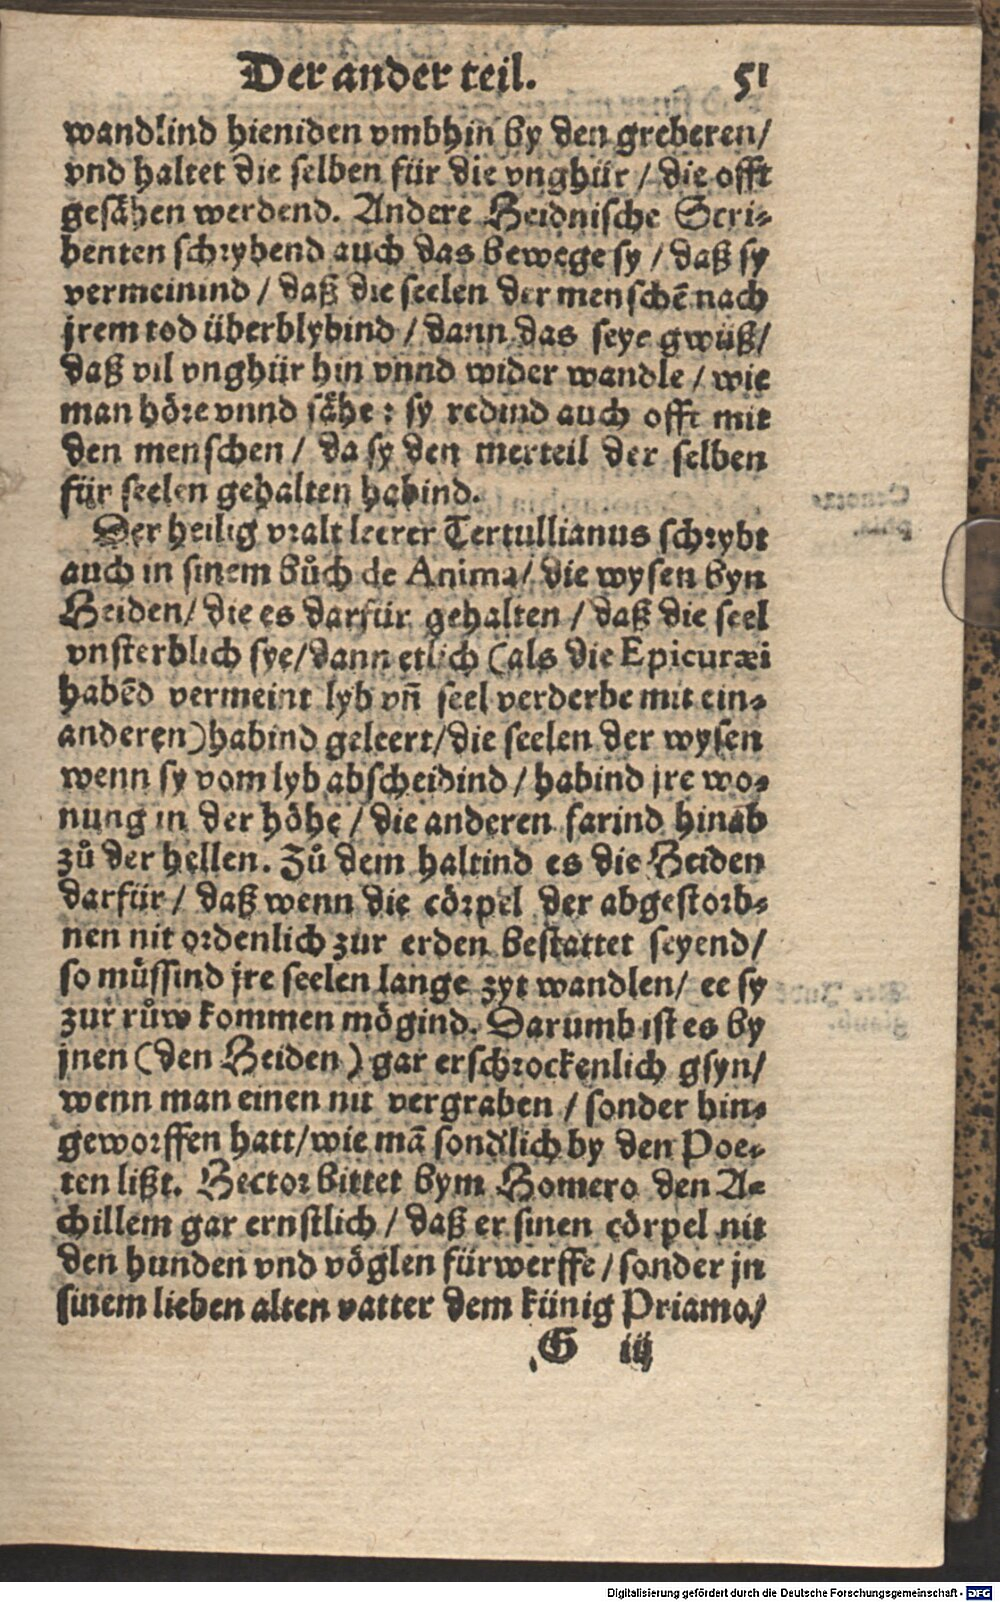 Der ander teil. 51
wandlind hieniden vmbhin by den greberen/
vnd haltet die selben für die vnghür / die offt
gesähen werdend. Andere Heidnische Scri-
benten schrybend auch das bewege sy / daß sy
vermeinind / daß die seelen der menschẽ nach
jrem tod überblybind / dann das seye gwüß/
daß vil vnghür hin vnnd wider wandle / wie
man höre vnnd sähe : sy redind auch offt mit
den menschen / da sy den merteil der selben
für seelen gehalten habind.
Der heilig vralt leerer Tertullianus schrybt
auch in sinem bůch de Anima/ die wysen byn
Heiden/ die es darfür gehalten / daß die seel
vnsterblich sye/dann etlich (als die Epicuræi
habẽd vermeint lyb vñ seel verderbe mit ein-
anderen)habind geleert/die seelen der wysen
wenn sy vom lyb abscheidind / habind jre wo-
nung in der höhe / die anderen farind hinab
zů der hellen. Zů dem haltind es die Heiden
darfür / daß wenn die cörpel der abgestorb-
nen nit ordenlich zur erden bestattet seyend/
so müssind jre seelen lange zyt wandlen/ ee sy
zur růw kommen mögind. Darumb ist es by
jnen (den Heiden) gar erschrockenlich gsyn/
wenn man einen nit vergraben / sonder hin-
geworffen hatt/wie mã sondlich by den Poe-
ten lißt. Hector bittet bym Homero den A-
chillem gar ernstlich / daß er sinen cörpel nit
den hunden vnd vöglen fürwerffe / sonder jn
sinem lieben alten vatter dem künig Priamo/
G iij
Digitalisierung gefördert durch die Deutsche Forschungsgemeinschaft - DFG